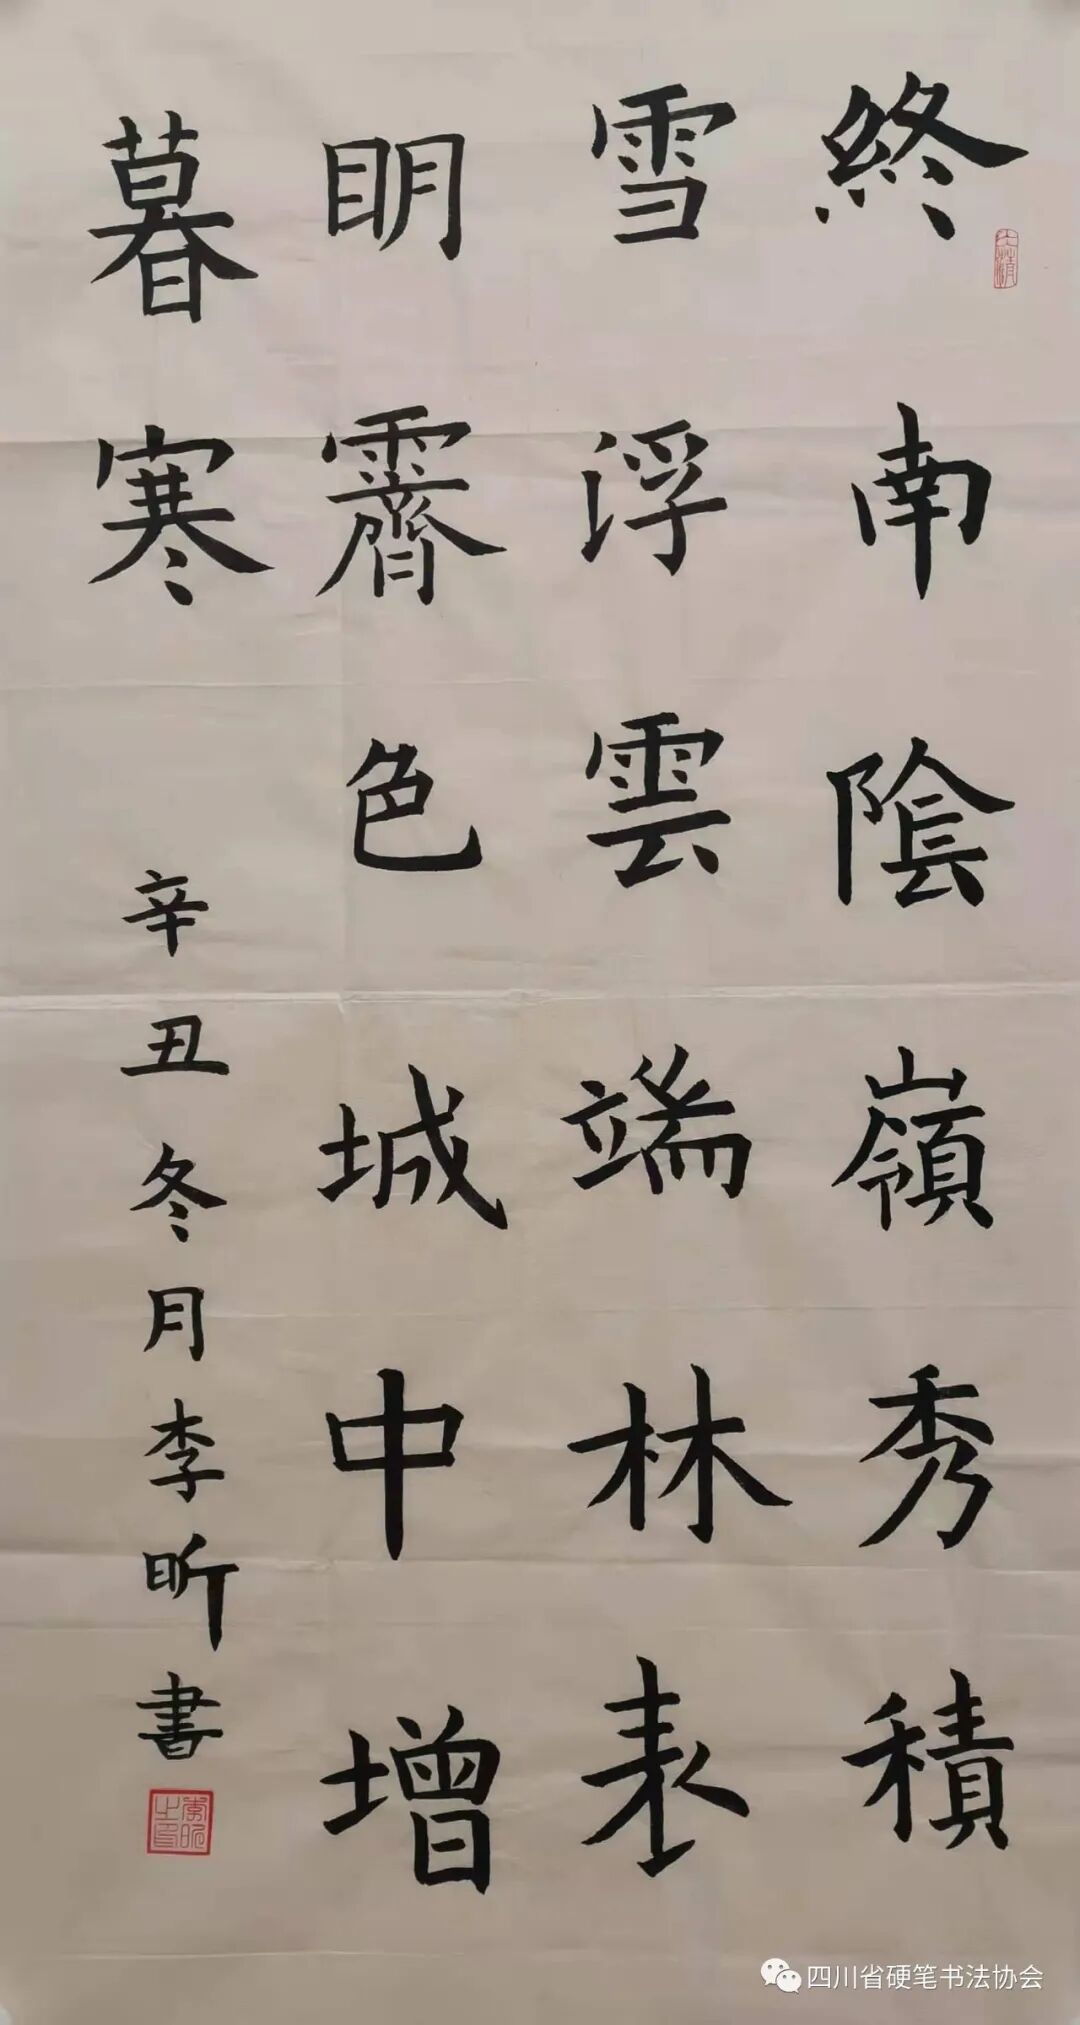 終南陰嶺秀積
雪浮雲端林表
明霽色城中增
暮寒
辛丑冬月李昕書
李昕之印
四川省硬笔书法协会